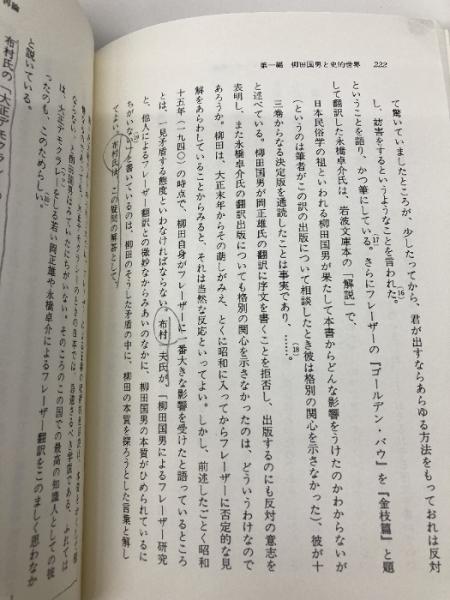 第一編　柳田国男と史的世界　222
て驚いていましたところが、少したってから、君が出すならあらゆる方法をもっておれは反対
し、妨害をするというようなことを言われた。(16)
ということを語り、かつ筆にしている。(17)さらにフレーザーの『ゴールデン・バウ』を『金枝篇』と題
して翻訳した永橋卓介氏は、岩波文庫本の「解説」で、
日本民俗学の祖といわれる柳田国男が果たして本書からどんな影響をうけたのかわからないが
（というのは筆者がこの訳の出版について相談したとき彼は格別の関心を示さなかった）、彼が十
三巻からなる決定版を通読したことは事実であり、……。(18)
と述べている。柳田国男が岡正雄氏の翻訳に序文を書くことを拒否し、出版するのにも反対の意志を
表明し、また永橋卓介氏の翻訳出版についても格別の関心を示さなかったのは、どういうわけなので
あろうか。柳田は、大正末年からその萌しがみえ、とくに昭和に入ってからフレーザーに否定的な見
解をあらわしていることからみると、それは当然な反応といってよい。しかし、前述したごとく昭和
十五年（一九四〇）の時点で、柳田自身がフレーザーに一番大きな影響を受けたと語っているところ
とは、一見矛盾する態度といわなければならない。布村一夫氏が、「柳田国男によるフレーザー研究
と、他人によるフレーザー翻訳との微妙なからみあいのなかに、柳田国男の本質がひめられているに
ちがいない」(19)と書いているのは、柳田のそうした矛盾の中に、柳田の本質を探ろうとした言葉と解し
てよい。布村氏は、この設問の解答として、
は、大正デモクラシーの
ったのも、このためらしい。(20)
る若い岡正雄や永橋卓介によるフレーザー翻訳をこのましく思わなか
と説いている。
布村氏の「大正デモクラシー
再論